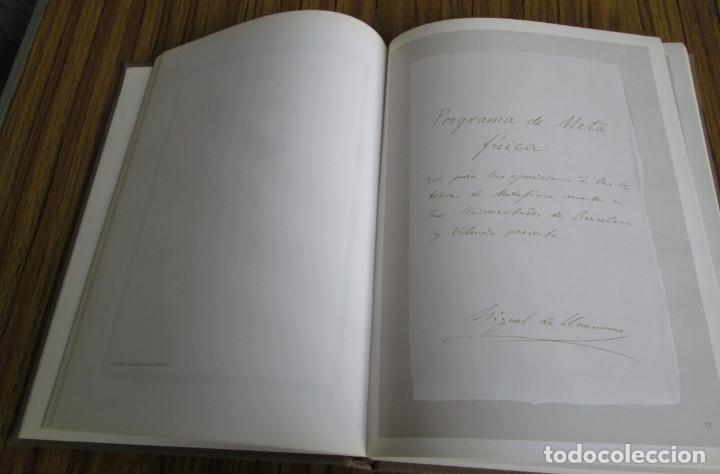 Programa de Meta
física
que para las oposiciones á las cá
tedras de Metafísica vacantes en
las Universidades de Barcelona
y Valencia presenta
Miguel de Unamuno
11
todocoleccion